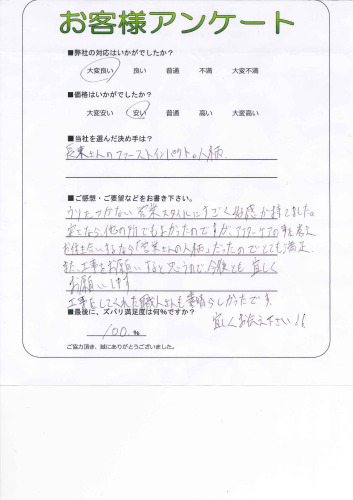 お客様アンケート
■弊社の対応はいかがでしたか？
大変良い 良い 普通 不満 大変不満
■価格はいかがでしたか？
大変安い 安い 普通 高い 大変高い
■当社を選んだ決め手は？
長東さんのファーストインパクトの人柄
■ご感想・ご要望などをお書き下さい。
うりたつけない営業スタイルにすごく好感が持てました。
なら、他の所でもよかったのですが、アフターケアの事を考え
お付き合いするなら「営業さんの人柄」だったのでとても満足。
また、工事をお願いすると思うので今後とも宜しく
お願いします
工事をしてくれた職人さんも素晴らしかったです。
宜しくお伝え下さい!!
■最後に、ズバリ満足度は何％ですか？
100 ％
ご協力頂き、誠にありがとうございました。